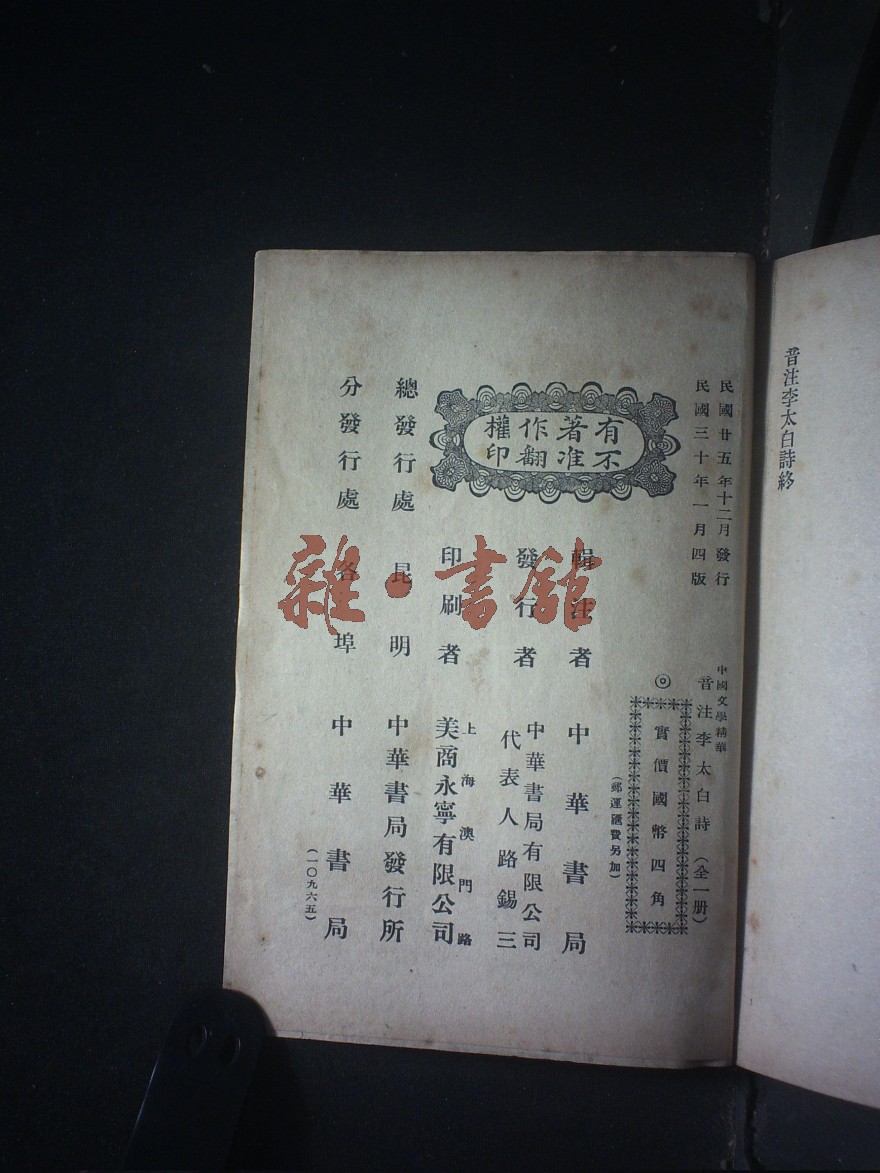 音注李太白詩終
民國廿五年十二月發行
民國三十年一月四版
中國文學精華
音注李太白詩（全一册）
◎實價國幣四角
（郵運匯費另加）
有著作權
不准翻印
輯注者 中華書局
發行者 中華書局有限公司
代表人路錫三
印刷者 上海澳門路
美商永寧有限公司
總發行處 昆明 中華書局發行所
分發行處 各埠 中華書局
（一〇九六五）
雜·書館